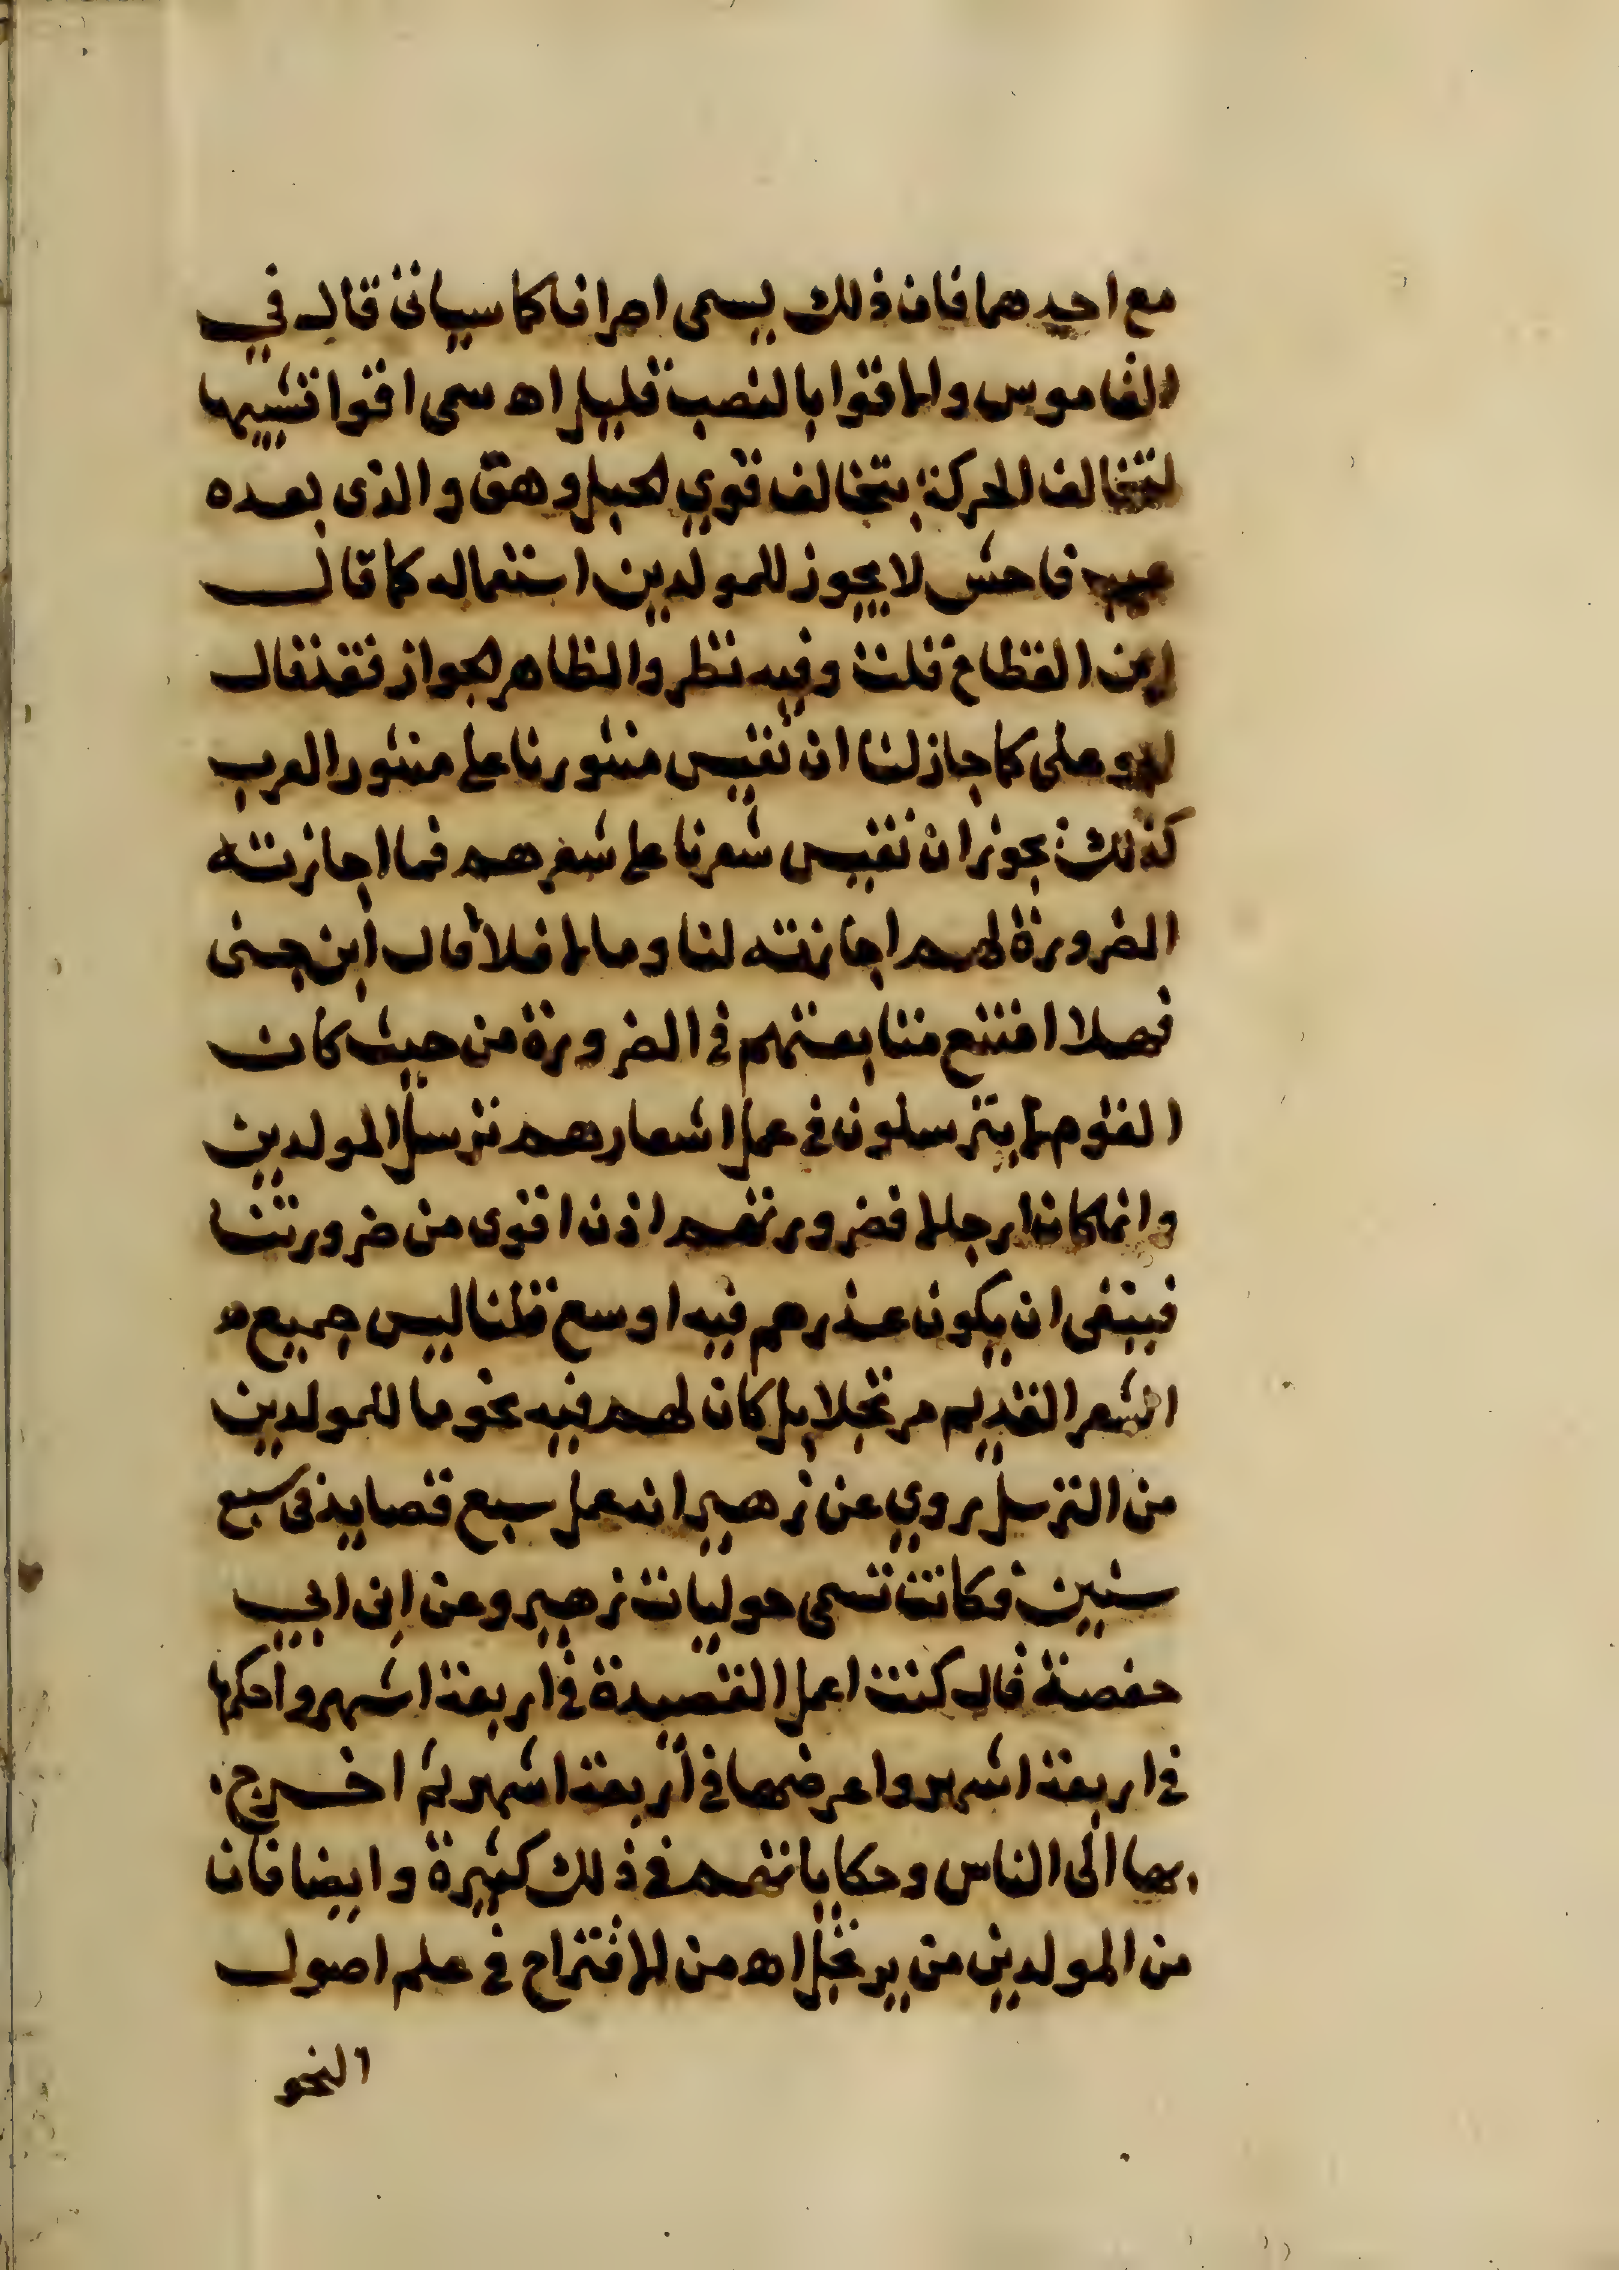 مع احدهما فان ذلك يسمى اصرافا كما سياتى قال في
القاموس والاقوا بالنصب قليل اه سمى اقوا تشبيها
لتخالف الحركة بتخالف قوي الحبل وهو والذى بعده
عيب فاحش لا يجوز للمولدين استعماله كما قال
ابن القطاع قلت وفيه نظر والظاهر الجواز فقد قال
ابو على كما جاز لنا ان نقيس منثورنا على منثور العرب
كذلك يجوز ان نقيس شعرنا على شعرهم فما اجازته
الضرورة لهم اجازته لنا وما لا فلا قال ابن جنى
فهلا امتنع متابعتهم في الضرورة من حيث كان
القوم لا يترسلون في عمل اشعارهم ترسل المولدين
وانما كان ارجالا فضرورتهم اذن اقوى من ضرورتنا
فينبغى ان يكون عذرهم فيه اوسع قلنا ليس جميع
الشعر القديم مرتجلا بل كان لهم فيه نحو ما للمولدين
من الترسل روي عن زهير انه عمل سبع قصايد فى سبع
سنين فكانت تسمى حوليات زهير وعن ابن ابي
حفصة قال كنت اعمل القصيدة في اربعة اشهر واحكمها
في اربعة اشهر واعرضها في اربعة اشهر ثم اخرج
بها الى الناس وحكاياتهم في ذلك كثيرة وايضا فان
من المولدين من يرتجل اه من الاقتراح في علم اصول
النحو